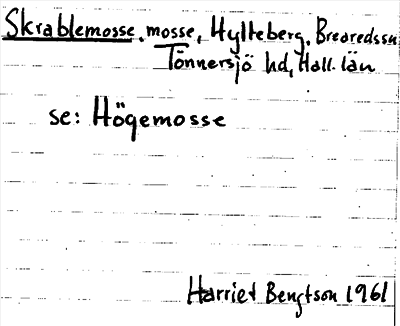 Skrablemosse, mosse, Hylteberg, Brearedssn
Tönnersjö hd, Hall. län
se: Högemosse
Harriet Bengtson 1961